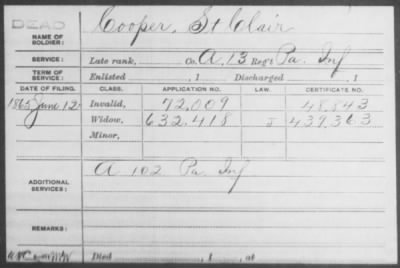 DEAD
NAME OF SOLDIER: Cooper, St Clair
SERVICE: Late rank, Co. A, 13 Reg't Pa. Inf
TERM OF SERVICE: Enlisted , 1 Discharged , 1
DATE OF FILING. CLASS. APPLICATION NO. LAW. CERTIFICATE NO.
1865 June 12 Invalid, 72,009 48,843
Widow, 632,418 J 439,363
Minor,
ADDITIONAL SERVICES: A 102 Pa. Inf
REMARKS:
Died , 1 , at